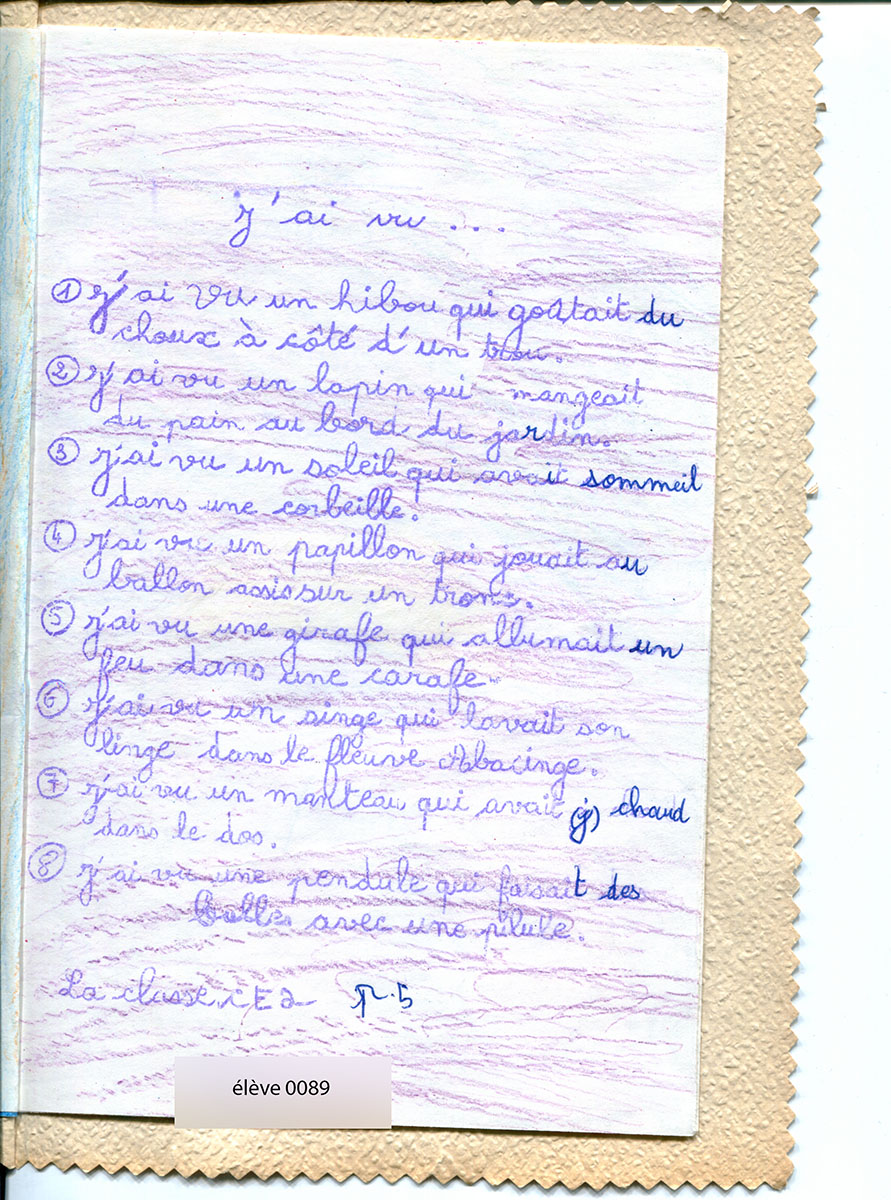 j'ai vu ...
① j'ai vu un hibou qui goûtait du
choux à côté d'un trou.
② j'ai vu un lapin qui mangeait
du pain au bord du jardin.
③ j'ai vu un soleil qui avait sommeil
dans une corbeille.
④ j'ai vu un papillon qui jouait au
ballon assis sur un tronc.
⑤ j'ai vu une girafe qui allumait un
feu dans une carafe.
⑥ j'ai vu un singe qui lavait son
linge dans le fleuve Abacinge.
⑦ j'ai vu un manteau qui avait (j) chaud
dans le dos.
⑧ j'ai vu une pendule qui faisait des
Bulles avec une pilule.
La classe CE2 p.5
élève 0089